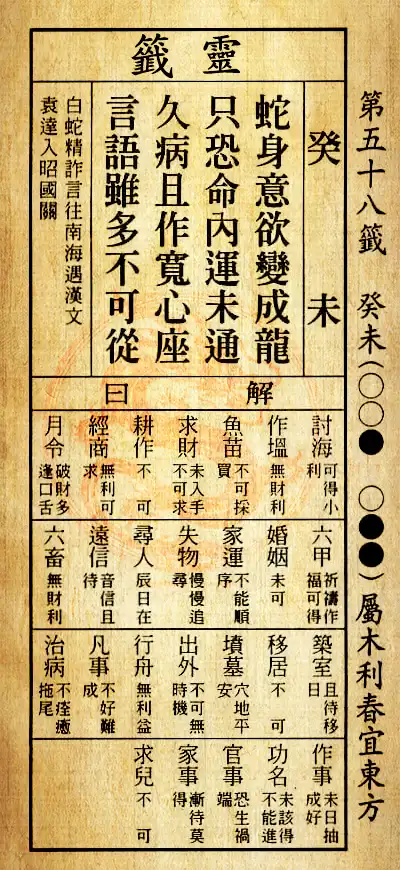 第五十八籤 癸未(○○● ○●●)屬木利春宜東方
靈籤
癸未
蛇身意欲變成龍
只恐命內運未通
久病且作寬心座
言語雖多不可從
白蛇精詐言往南海遇漢文
袁達入昭國關
解曰
討海 可得小利
作塭 無財利
魚苗 不可採買
求財 未入手不可求
耕作 不可
經商 無利可求
月令 破財多逢口舌
六甲 祈禱作福可得
婚姻 未可
家運 不能順序
失物 慢慢追尋
尋人 辰日在
遠信 音信且待
六畜 無財利
築室 且待移日
移居 不可
墳墓 穴地平安
出外 不可無時機
行舟 無利益
凡事 不好難成
治病 不痊癒拖尾
作事 未日抽成好
功名 未該得不能進
官事 恐生禍端
家事 漸待莫得
求兒 不可